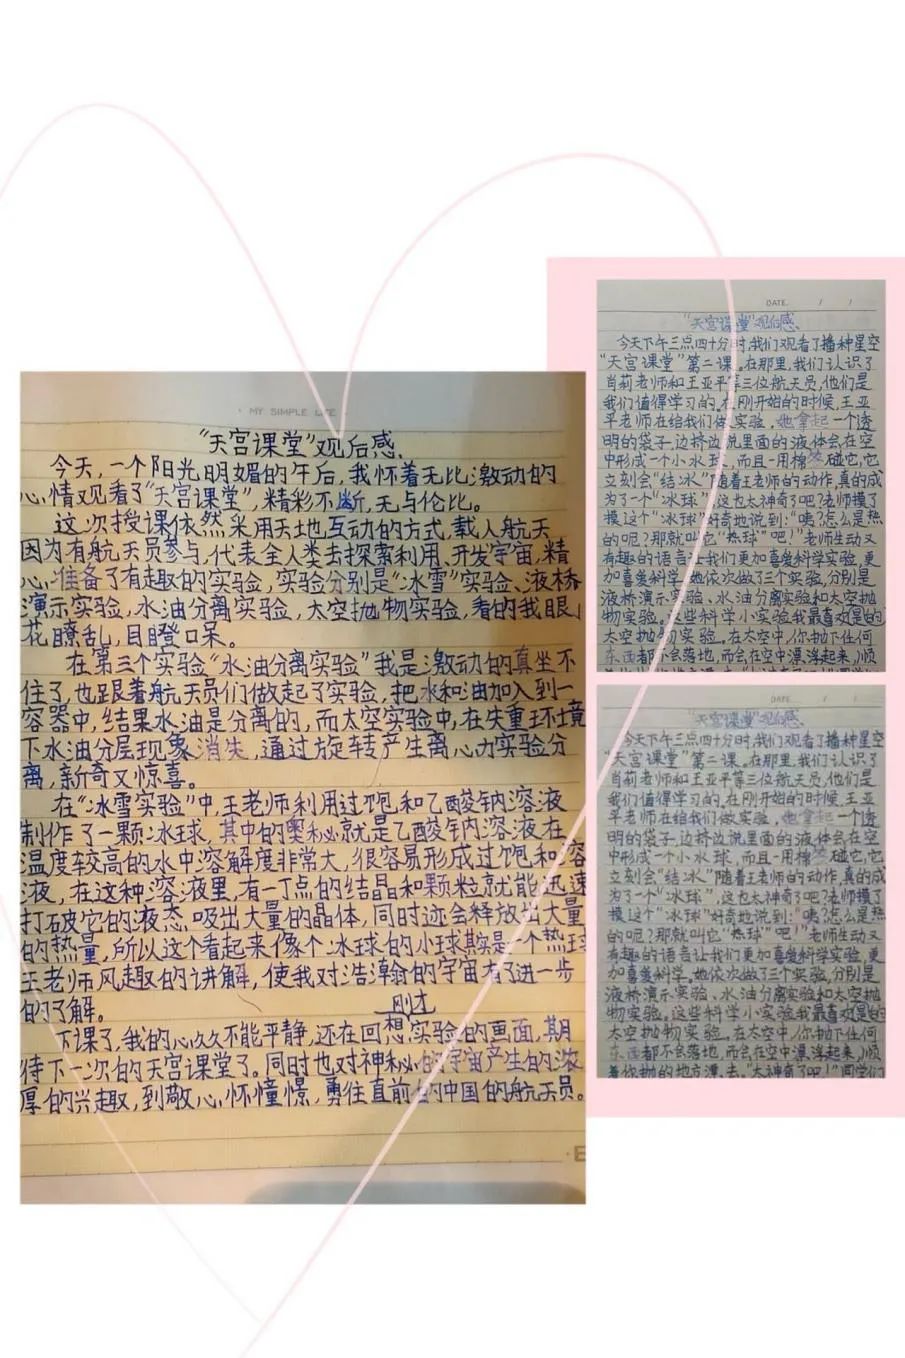 MY SIMPLE LIFE
“天宫课堂”观后感.
今天,一个阳光明媚的午后,我怀着无比激动的
心情观看了“天宫课堂”,精彩不断,无与伦比。
这次授课依然采用天地互动的方式,载人航天
因为有航天员参与,代表全人类去探索利用,开发宇宙,精
心准备了有趣的实验,实验分别是“冰雪”实验、液桥
演示实验,水油分离实验,太空抛物实验,看的我眼
花瞭乱,目瞪口呆。
在第三个实验“水油分离实验”我是激动的真坐不
住了,也跟着航天员们做起了实验,把水和油加入到一
容器中,结果水油是分离的,而太空实验中,在失重环境
下水油分层现象消失,通过旋转产生离心力实验分
离,新奇又惊喜。
在“冰雪实验”中,王老师利用过饱和乙酸钠溶液
制作了一颗冰球,其中的奥秘就是乙酸钠溶液在
温度较高的水中溶解度非常大,很容易形成过饱和溶
液,在这种溶液里,有一丁点的结晶和颗粒就能迅速
打破它的液态,吸出大量的晶体,同时还会释放出大量
的热量,所以这个看起来像个冰球的小球其实是一个热球
王老师风趣的讲解,使我对浩瀚的宇宙有了进一步
的了解。
刚才
下课了,我的心久久不能平静,还在回想实验的画面,期
待下一次的天宫课堂了。同时也对神秘的宇宙产生的浓
厚的兴趣,到敬心怀憧憬,勇往直前的中国的航天员。
DATE. / /
“天宫课堂”观后感.
今天下午三点四十分时,我们观看了播种星空
“天宫课堂”第二课。在那里,我们认识了
肖莉老师和王亚平等三位航天员,他们是
我们值得学习的,在刚开始的时候,王亚
平老师在给我们做实验,她拿起一个透
明的袋子,边挤边说里面的液体会在空
中形成一个小水球,而且一用棉签碰它,它
立刻会“结冰”随着王老师的动作,真的成
为了一个“冰球”,这也太神奇了吧?老师摸了
摸这个“冰球”好奇地说到:“咦?怎么是热
的呢?那就叫它“热球”吧!”老师生动又
有趣的语言让我们更加喜爱科学实验,更
加喜爱科学。她依次做了三个实验,分别是
液桥演示实验、水油分离实验和太空抛
物实验。这些科学小实验我最喜欢是的
太空抛物实验。在太空中,你抛下任何
东西都不会落地,而会在空中漂浮起来,顺
DATE / /
“天宫课堂”观后感.
今天下午三点四十分时,我们观看了播种星空
“天宫课堂”第二课。在那里,我们认识了
肖莉老师和王亚平等三位航天员,他们是
我们值得学习的,在刚开始的时候,王亚
平老师在给我们做实验,她拿起一个透
明的袋子,边挤边说里面的液体会在空
中形成一个小水球,而且一用棉签碰它,它
立刻会“结冰”随着王老师的动作,真的成
为了一个“冰球”,这也太神奇了吧?老师摸了
摸这个“冰球”好奇地说到:“咦?怎么是热
的呢?那就叫它“热球”吧!”老师生动又
有趣的语言让我们更加喜爱科学实验,更
加喜爱科学。她依次做了三个实验,分别是
液桥演示实验、水油分离实验和太空抛
物实验。这些科学小实验我最喜欢是的
太空抛物实验。在太空中,你抛下任何
东西都不会落地,而会在空中漂浮起来,顺
着你抛的地方漂去。“太神奇了吧!”同学们